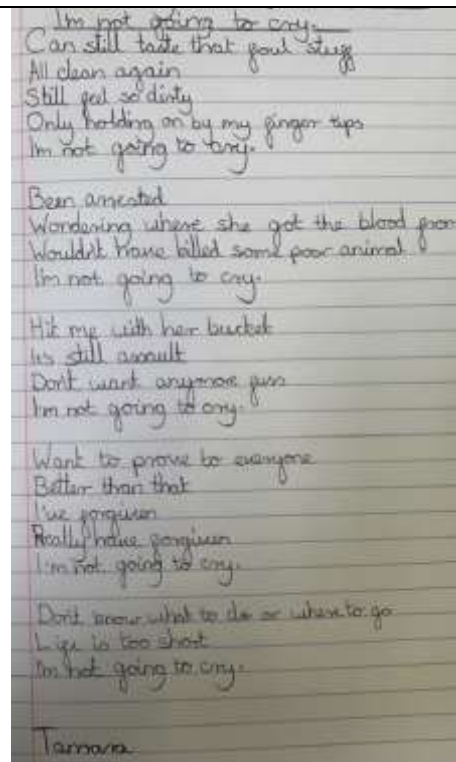 Im not going to cry.
Can still taste that foul stuff
All clean again
Still feel so dirty
Only holding on by my finger tips
Im not going to cry.
Been arrested
Wondering where she got the blood from
Wouldn't have killed some poor animal
I'm not going to cry.
Hit me with her bucket
Its still assault
Don't want anymore fuss
I'm not going to cry.
Want to prove to everyone
Better than that
I've forgiven
Really have forgiven
I'm not going to cry.
Don't know what to do or where to go
Life is too short
I'm not going to cry.
Tamara